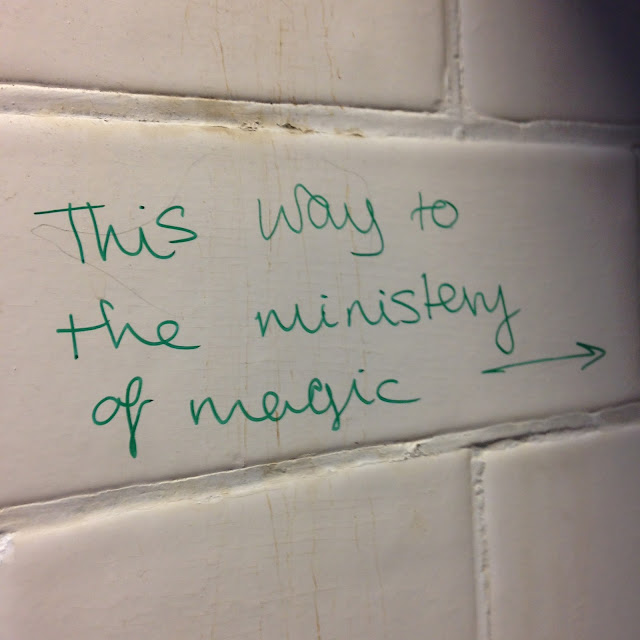 This way to
the ministery
of magic →